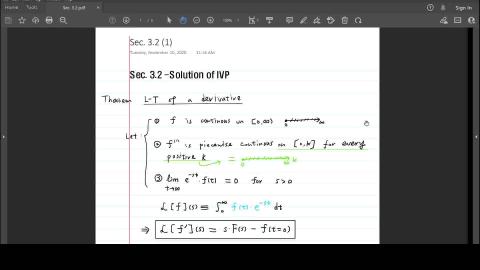 Home Tools Sec 3.2.pdf
Sign In
Sec. 3.2 (1)
Tuesday, November 10, 2020 11:16 AM
Sec. 3.2 –Solution of IVP
Theorem L-T of a derivative
Let
① f is continous on [0,∞) 0 ∞
② f' is piecewise continous on [0,k] for every
positive k = 0 k
③ lim e^-st · f(t) = 0 for s>0
t→∞
ℒ[f](s) ≡ ∫₀^∞ f(t)·e^-st dt
⇒ ℒ[f'](s) = s·F(s) − f(t=0)